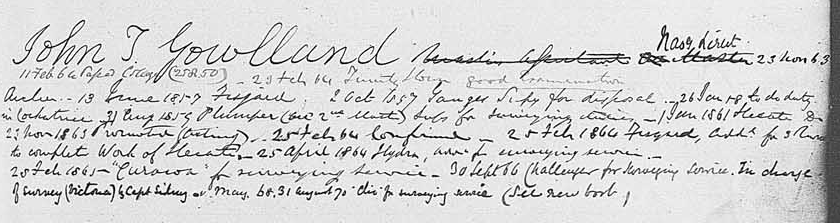 John T. Gowlland Master Assistant 2nd Master Nav. Lieut. 23 Nov 63
11 Feb 64 Passed College (258.50) 23 Feb 64 Trinity House good examination
13 June 1857 Fisgard. 2 Oct 1857 Ganges Supy for disposal. 26 Jan 58 to do duty
in Cockatrice 31 Aug 1859 Plumper (as 2nd Mast) Supy for surveying duties 1 Jan 1861 Hecate Do
23 Nov 1863 Promoted (Acting). 25 Feb 64 Confirmed 25 Feb 1864 Fisgard, addl for 3
to complete Work of Hecate 25 April 1864 Hydra, for surveying service.
28 Feb 1865 "Curacoa" for surveying service 30 Sept 66 Challenger for Surveying Service. In charge
of Survey (Victoria) by Capt Sidney May 68. 31 August 70 "Clio" for surveying service (See new book)